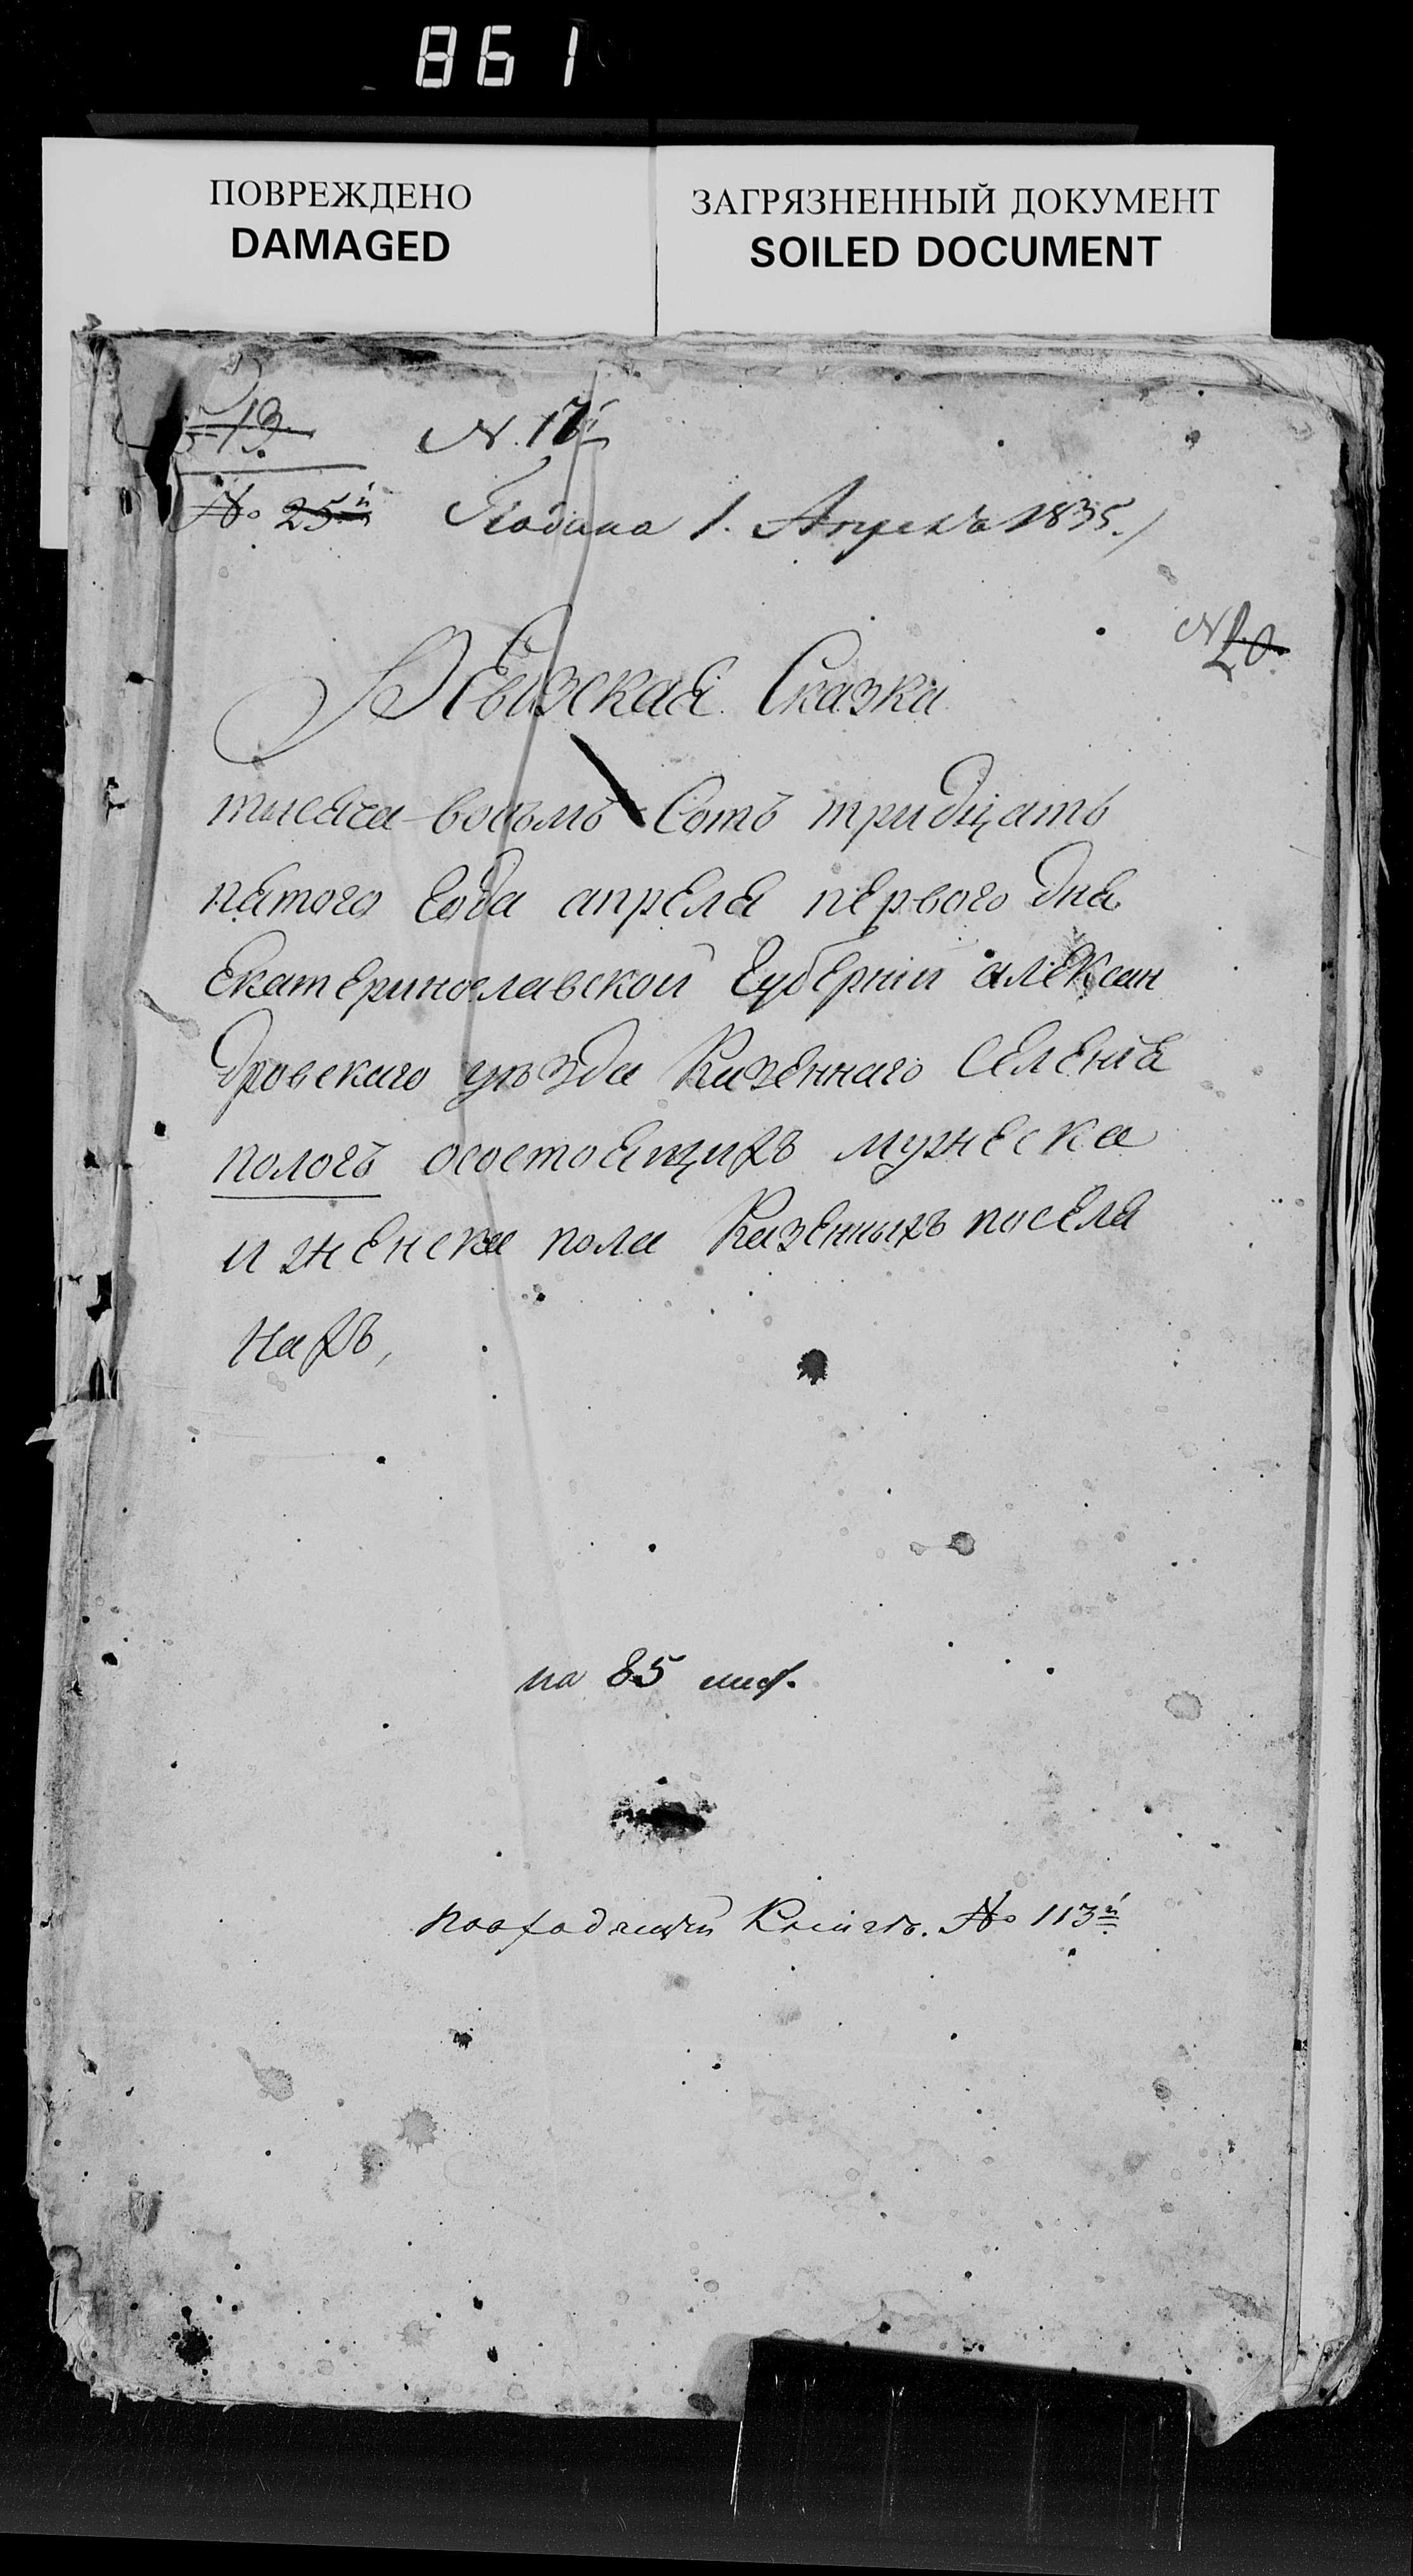 861
ПОВРЕЖДЕНО
DAMAGED
ЗАГРЯЗНЕННЫЙ ДОКУМЕНТ
SOILED DOCUMENT
19.
N. 17й
№ 25й
Подана 1. Апреля 1835.
N 20.
Ревизская Сказка
тысяча восьмъ Сотъ тридцать
пятого года апреля первого дня
Екатеринославской губернии алексан
дровскаго уѣзда Казеннаго Селения
пологъ осостоящихъ мужеска
и женска пола Казенныхъ поселя
нахъ,
на 85 лист.
повходящей Книгѣ. № 113й